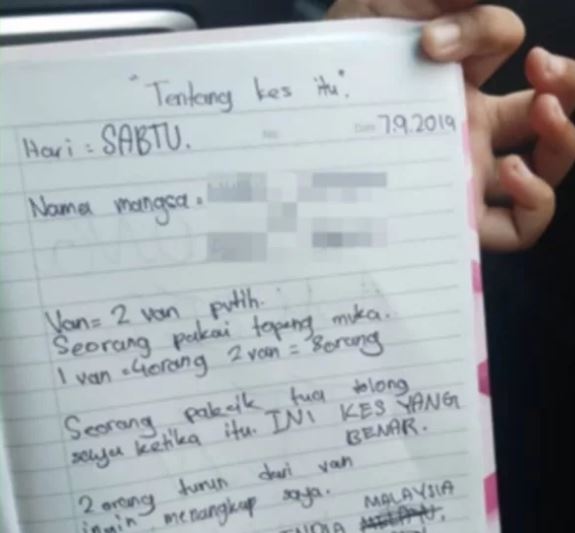 "Tentang kes itu".
Hari = SABTU.
No. Date 7.9.2019
Nama mangsa =
Van = 2 van putih.
Seorang pakai topeng muka.
1 van = 4orang 2 van = 8orang
Seorang pakcik tua tolong
saya ketika itu. INI KES YANG
BENAR.
2 orang turun dari van
ingin menangkap saya.
MALAYSIA
INDIA